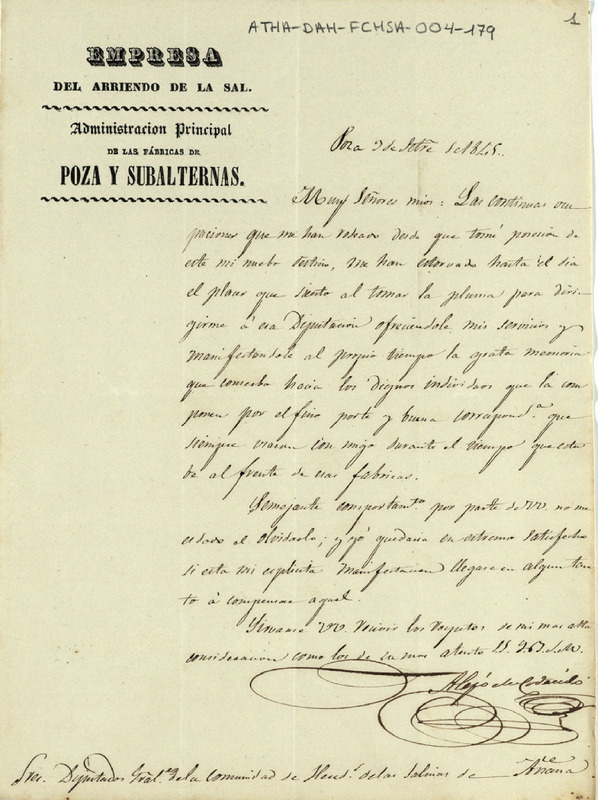 ATHA-DAH-FCHSA-004-179
1
EMPRESA
DEL ARRIENDO DE LA SAL.
Administracion Principal
DE LAS FÁBRICAS DE
POZA Y SUBALTERNAS.
Poza 3 de de 1845.
Muy Señores mios: Las continuas ocu
paciones que me han rodeado desde que tomé posesion de
este mi nuebo destino, me han estorvado hasta el dia
el placer que siento al tomar la pluma para diri
girme á esa Diputacion ofreciendole mis servicios y
manifestandole al propio tiempo la grata memoria
que conserbo hacia los Dignos individuos que la com
ponen por el fino porte y buena correspond.ª que
siempre usaron con migo durante el tiempo que estu
be al frente de esas fabricas.
Semejante comportam.to por parte de VV. no me
es dado el olvidarlo; y yó quedaria en estremo satisfecho
si esta mi esplicita manifestacion llegase en algun tan
to á compensar aquel.
Sirvanse VV. recivir los respetos de mi mas alta
consideracion como los de su mas atento
Alejo de
Sres. Diputados Gral.es de la Comunidad de Hered.s de las Salinas de Añana